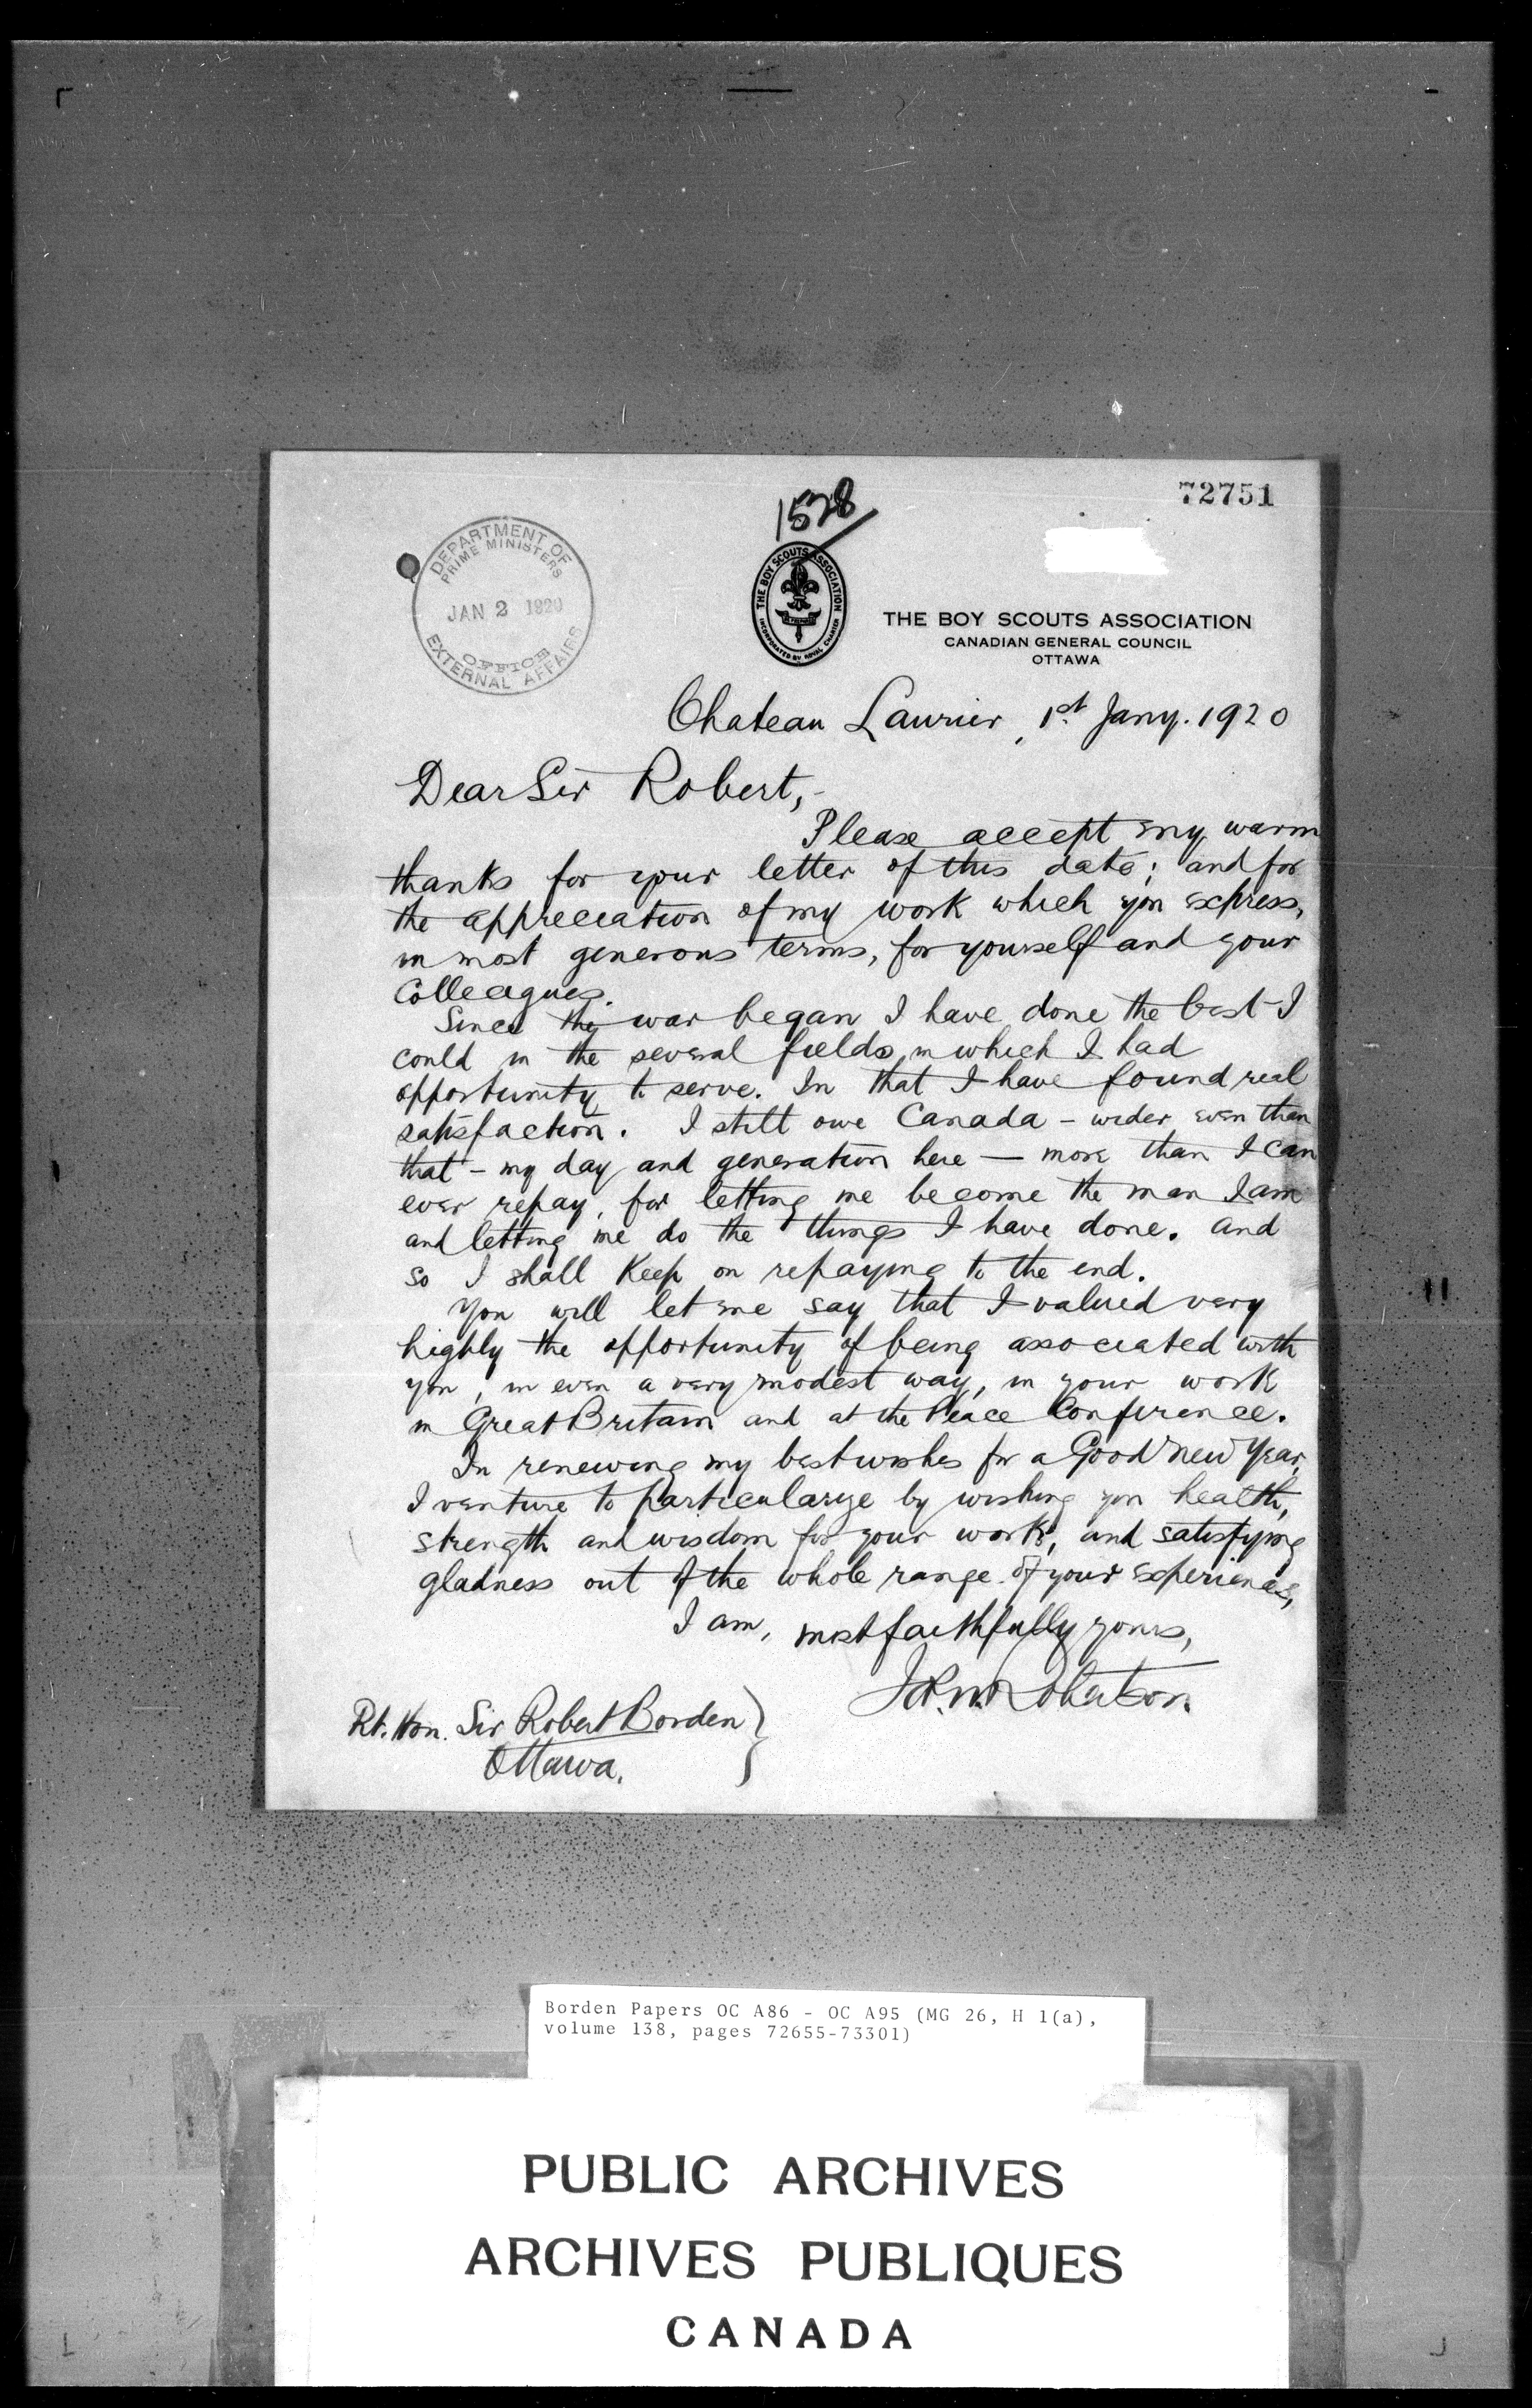 72751
1528
DEPARTMENT OF
PRIME MINISTERS
JAN 2 1920
OFFICE
EXTERNAL AFFAIRS
THE BOY SCOUTS ASSOCIATION
INCORPORATED BY ROYAL CHARTER
THE BOY SCOUTS ASSOCIATION
CANADIAN GENERAL COUNCIL
OTTAWA
Chateau Laurier, 1st Jany. 1920
Dear Sir Robert,-
Please accept my warm
thanks for your letter of this date; and for
the appreciation of my work which you express,
in most generous terms, for yourself and your
Colleagues.
Since the war began I have done the best I
could in the several fields in which I had
opportunity to serve. In that I have found real
satisfaction. I still owe Canada - wider even than
that - my day and generation here — more than I can
ever repay, for letting me become the man I am
and letting me do the things I have done. And
so I shall keep on repaying to the end.
You will let me say that I valued very
highly the opportunity of being associated with
you, in even a very modest way, in your work
in Great Britain and at the Peace Conference.
In renewing my best wishes for a Good New Year,
I venture to particularize by wishing you health,
strength and wisdom for your work, and satisfying
gladness out of the whole range of your experiences,
I am, most faithfully yours,
Jas. W. Robertson.
Rt. Hon. Sir Robert Borden }
Ottawa.
Borden Papers OC A86 - OC A95 (MG 26, H 1(a),
volume 138, pages 72655-73301)
PUBLIC ARCHIVES
ARCHIVES PUBLIQUES
CANADA